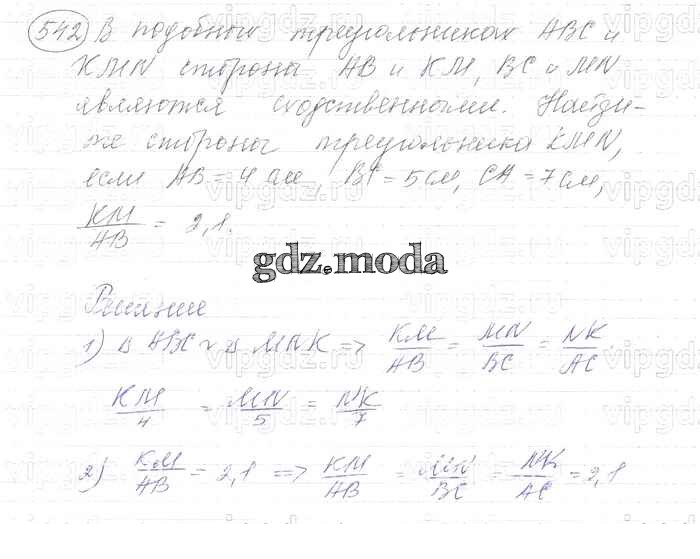 542 В подобных треугольниках ABC и
KMN стороны AB и KM, BC и MN
являются сходственными. Найди-
те стороны треугольника KMN,
если AB = 4 см, BC = 5 см, CA = 7 см,
KM/AB = 2,1.
gdz.moda
Решение
1) Δ ABC ~ Δ MNK => KM/AB = MN/BC = NK/AC.
KM/4 = MN/5 = NK/7
2) KM/AB = 2,1 => KM/AB = MN/BC = NK/AC = 2,1
vipgdz.ru